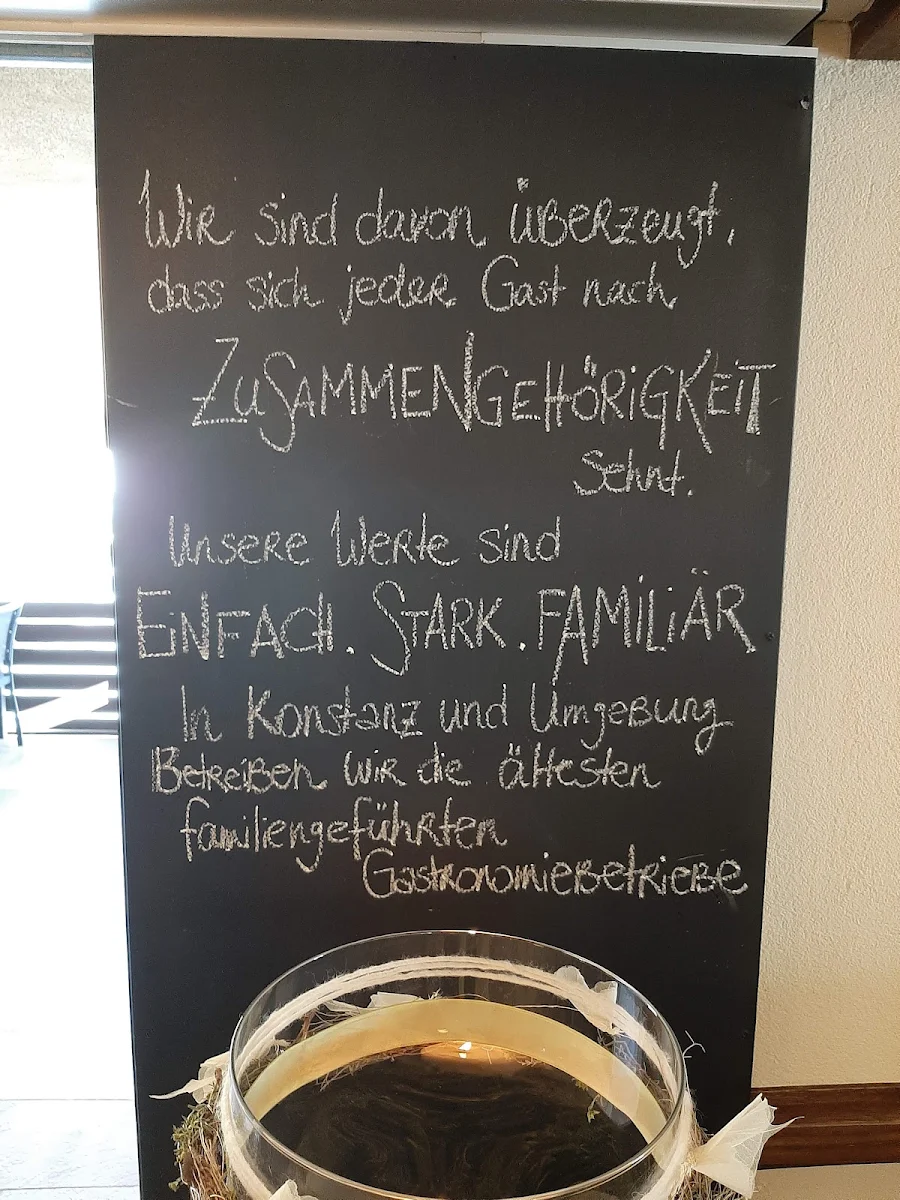 Wir sind davon überzeugt,
dass sich jeder Gast nach
ZUSAMMENGEHÖRIGKEIT
Sehnt.
Unsere Werte sind
EINFACH. STARK. FAMILIÄR
In Konstanz und Umgebung
Betreiben wir die ältesten
familiengeführten
Gastronomiebetriebe